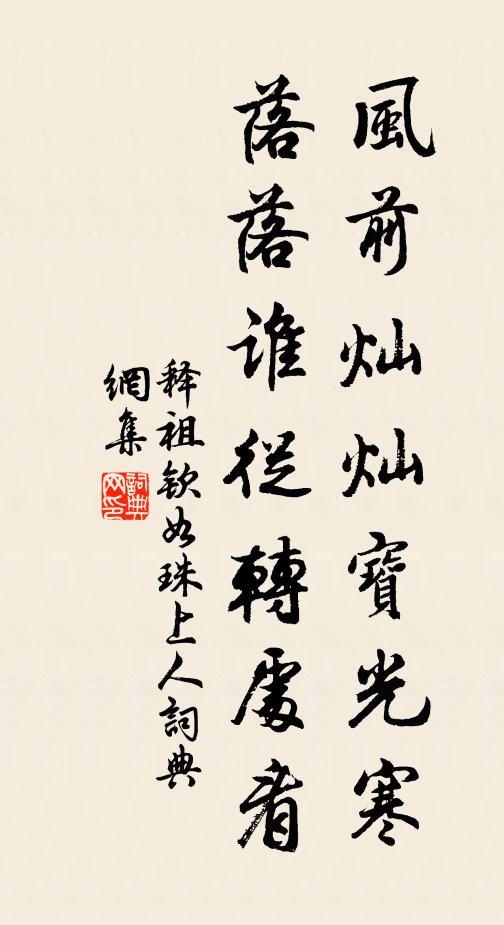 風前灿灿寶光寒
落落誰從轉處看
释祖欽如珠上人詞典
網集
詞典
网印